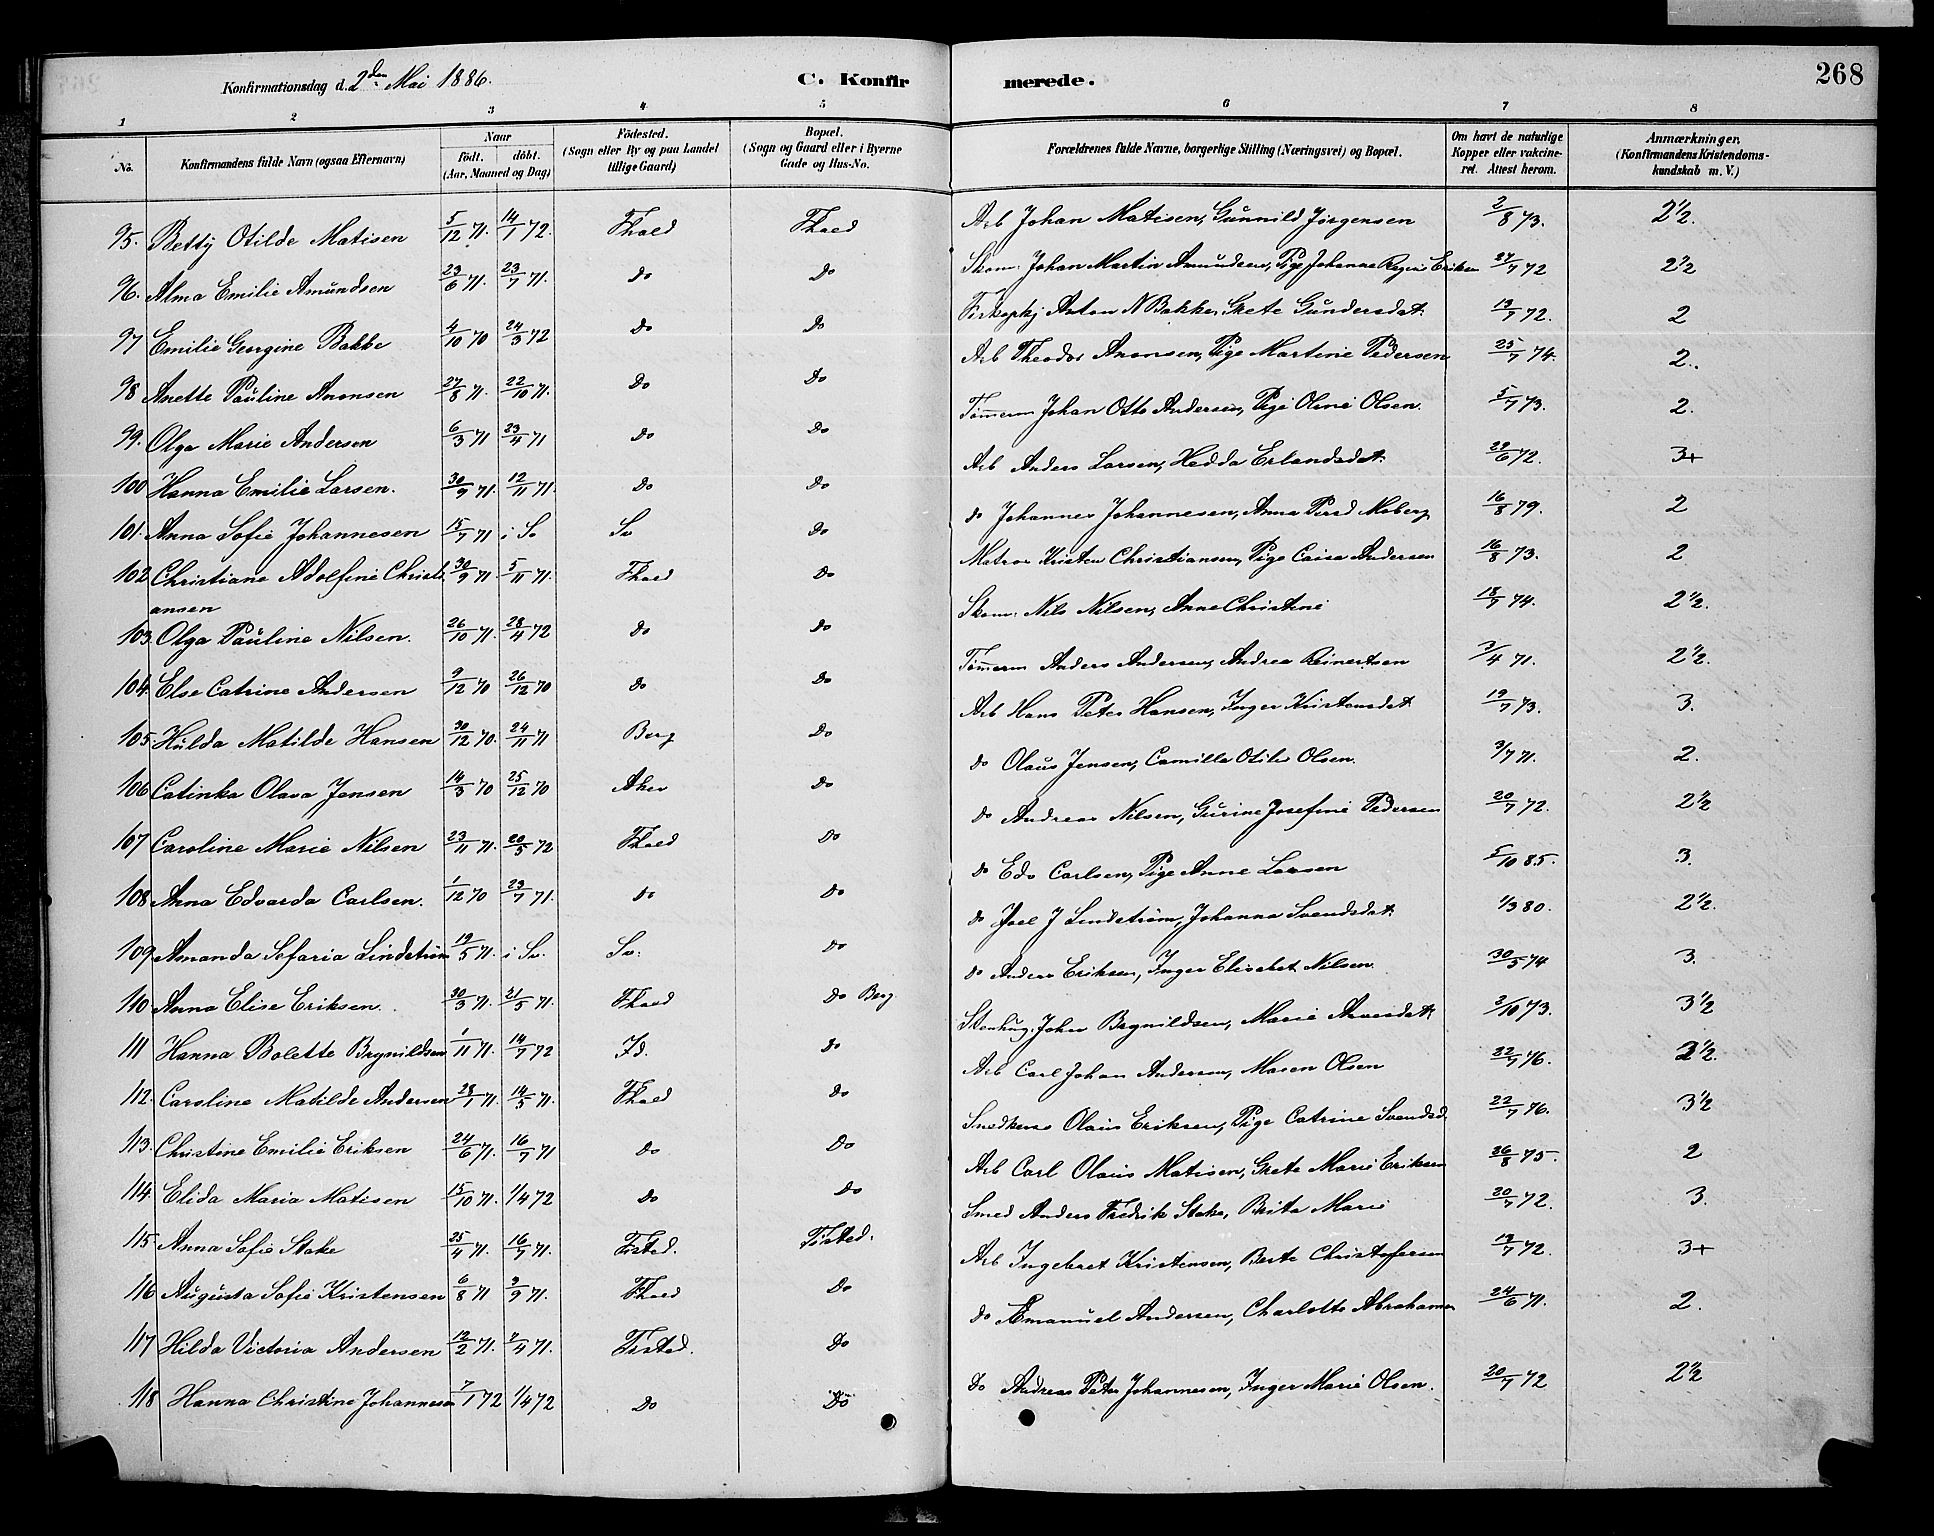 Konfirmationsdag d. 2den Mai 1886. C. Konfir merede. 268
1 2 3 4 5 6 7 8
No. Konfirmandens fulde Navn (ogsaa Efternavn) Naar født. døbt. (Aar, Maaned og Dag) Fødested. (Sogn eller By og paa Landet tillige Gaard) Bopæl. (Sogn og Gaard eller i Byerne Gade og Hus-No. Forældrenes fulde Navne, borgerlige Stilling (Næringsvei) og Bopæl. Om havt de naturlige Kopper eller vakcineret. Attest herom. Anmærkninger. (Konfirmandens Kristendomskundskab m. V.)
95. Betty Otilde Matisen 5/12 71. 14/1 72. Fhald Fhald Arb Johan Matisen, Gunnild Jørgensen 2/8 73. 2 1/2.
96. Alma Emilie Amundsen 23/6 71. 23/7 71. Do Do Skom. Johan Martin Amundsen, Pige Johanne Regine Eriksen 27/7 72 2 1/2
97 Emilie Georgine Bakke 4/10 70 24/3 72 Do Do Anton N Bakke, Grete Gundersdat. 19/7 72. 2
98 Anette Pauline Aronsen 27/8 71. 22/10 71. Do Do Arb Theodor Aronsen, Pige Martine Pedersen 25/7 74. 2.
99. Olga Marie Andersen 6/3 71 23/4 71 Do Do Tømerm Johan Otto Andersen, Pige Oline Olsen. 5/7 73. 2.
100 Hanna Emilie Larsen. 30/9 71. 12/11 71. Do Do Arb Anders Larsen, Hedda Erlandsdat. 22/6 72. 3+
101. Anna Sofie Johannesen 15/7 71 i Sv Sv Do do Johannes Johannesen, Anna Persd Moberg 16/8 79. 2
102 Christiane Adolfine Christi 30/9 71 5/11 71. Fhald Do Matros Kristen Christiansen, Pige Caisa Andersen 16/8 73. 2
ansen
103. Olga Pauline Nilsen. 26/10 71. 28/4 72 Do Do Skom. Nils Nilsen, Anne Christine 18/7 74. 2 1/2.
104. Else Catrine Andersen 9/12 70 26/12 70 Do Do Tømerm Anders Andersen, Andrea Reinertsen 3/4 71. 2 1/2.
105. Hulda Matilde Hansen 30/12 70. 24/11 71 Berg Do Arb Hans Peter Hansen, Inger Kristensdat 19/7 73. 3.
106 Catinka Olava Jensen 14/3 70 25/12 70 Aker Do do Olaus Jensen, Camilla Otilie Olsen. 3/7 71. 2.
107 Caroline Marie Nilsen 23/11 71. 20/5 72 Fhald Do do Andreas Nilsen, Gurine Josefine Pedersen 20/7 72. 2 1/2
108 Anna Edvarda Carlsen. 1/12 70 23/7 71. Do Do do Edv Carlsen, Pige Anne Larsen 5/10 85. 3.
109 Amanda Sofaria Lindstrøm 19/5 71. i Sv. Sv. Do do Joel J Lindstrøm, Johanna Svendsdat. 1/3 80. 2 1/2.
110 Anna Elise Eriksen. 30/3 71. 21/5 71. Fhald Do Berg do Anders Eriksen, Inger Elisabet Nilsen. 30/5 74 3.
111 Hanna Bolette Brynildsen 1/11 71. 14/7 72 Id. Do Stenhug. Johan Brynildsen, Marie 2/10 73. 3 1/2
112. Caroline Matilde Andersen 28/1 71. 14/5 71. Fhald Do Arb Carl Johan Andersen, Maren Olsen 22/7 76. 2 1/2.
113. Christine Emilie Eriksen 24/6 71. 16/7 71 Do Do Olaus Eriksen, Pige Catrine Svendsd. 22/7 76. 3 1/2
114. Elida Maria Matisen 15/10 71. 1/4 72 Do Do Arb Carl Olaus Matisen, Grete Marie Eriksen 26/8 75. 2
115. Anna Sofie Stake 25/4 71. 16/7 71. Tisted. Tisted. Smed Anders Fredrik Stake, Brita Marie 20/7 72. 3.
116 Augusta Sofie Kristensen 6/8 71 3/9 71. Fhald Do Arb Ingebret Kristensen, Berte Christofersen 19/7 72. 3+
117 Hilda Victoria Andersen 12/2 71. 7/4 71. Tisted. Do do Emanuel Andersen, Charlotte Abrahamsen 24/6 71. 2.
118 Hanna Christine Johannesen 7/1 72 1/4 72 Do Do do Andreas Peter Johannesen, Inger Marie Olsen. 20/7 72 2 1/2